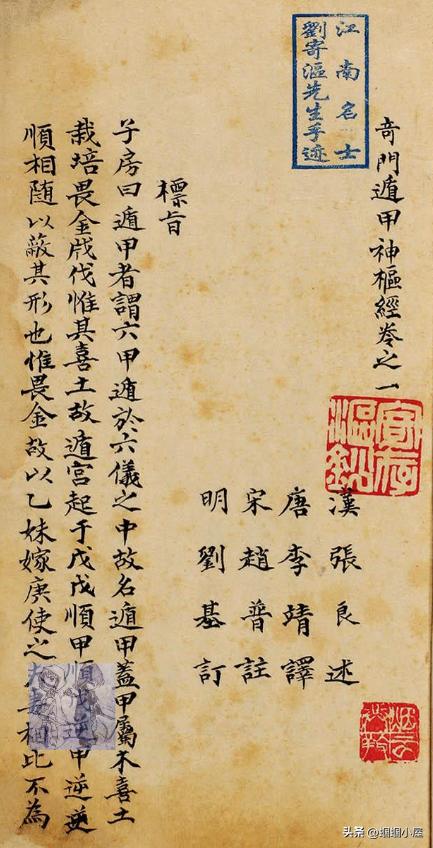 奇門遁甲神樞經卷之一
江南名士
劉寄漚先生手迹
漢張良述
唐李靖譯
宋趙普註
明劉基訂
標旨
子房曰遁甲者謂六甲遁於六儀之中故名遁甲蓋甲屬木喜土
栽培畏金戕伐惟其喜土故遁宮起于戊戊順甲順戊逆甲逆
順相随以蔽其形也惟畏金故以乙妹嫁庚使之夫妻相比不為
头条 @蝈蝈小屋